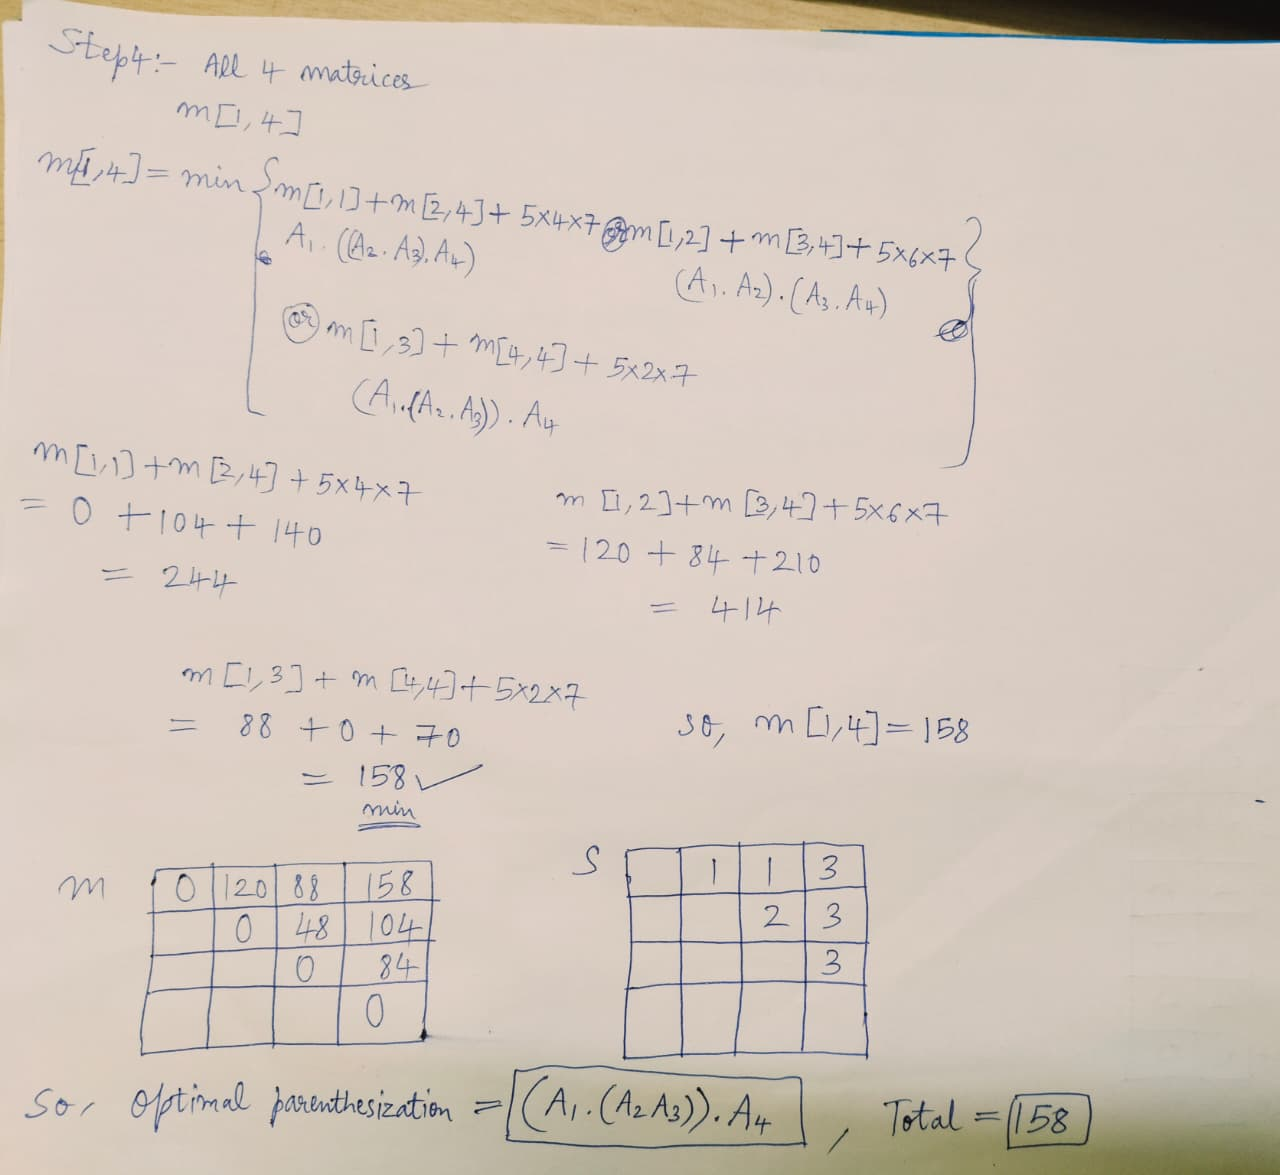 Step4:- All 4 matrices
m[1,4]
m[1,4] = min { m[1,1] + m[2,4] + 5x4x7 or m[1,2] + m[3,4] + 5x6x7 }
A₁. ((A₂. A₃). A₄) (A₁. A₂). (A₃. A₄)
or m[1,3] + m[4,4] + 5x2x7
(A₁.(A₂. A₃)). A₄
m[1,1] + m[2,4] + 5x4x7
= 0 + 104 + 140
= 244
m [1,2] + m [3,4] + 5x6x7
= 120 + 84 + 210
= 414
m [1,3] + m [4,4] + 5x2x7
= 88 + 0 + 70
= 158 ✓
min
so, m [1,4] = 158
m
0 120 88 158
0 48 104
0 84
0
S
1 1 3
2 3
3
So, optimal parenthesization = (A₁.(A₂ A₃)). A₄ , Total = 158